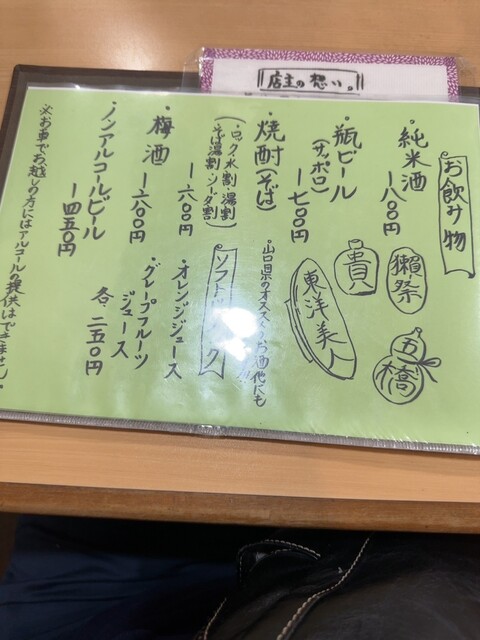 店主の想い。
お飲み物
・純米酒
ー八〇〇円
獺祭
五橋
貴
東洋美人
・瓶ビール
(サッポロ)
ー七〇〇円
・山口県のオススメのお酒他にも
・焼酎(そば)
(ロック 水割 湯割
そば湯割・ソーダ割)
ー六〇〇円
ソフトドリンク
・オレンジジュース
・グレープフルーツ
ジュース
各 二五〇円
・梅酒
ー六〇〇円
・ノンアルコールビール
ー四五〇円
※お車でお越しの方にはアルコールの提供はできません。